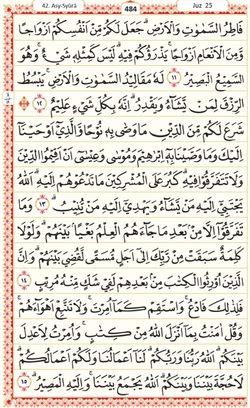 42. Asy-Syūrā 484 Juz 25
فَاطِرُ السَّمٰوٰتِ وَالْاَرْضِۗ جَعَلَ لَكُمْ مِّنْ اَنْفُسِكُمْ اَزْوَاجًا
وَّمِنَ الْاَنْعَامِ اَزْوَاجًاۚ يَذْرَؤُكُمْ فِيْهِۗ لَيْسَ كَمِثْلِهٖ شَيْءٌ ۚوَهُوَ
السَّمِيْعُ الْبَصِيْرُ ١١ لَهٗ مَقَالِيْدُ السَّمٰوٰتِ وَالْاَرْضِۚ يَبْسُطُ
الرِّزْقَ لِمَنْ يَّشَاۤءُ وَيَقْدِرُۚ اِنَّهٗ بِكُلِّ شَيْءٍ عَلِيْمٌ ١٢
شَرَعَ لَكُمْ مِّنَ الدِّيْنِ مَا وَصّٰى بِهٖ نُوْحًا وَّالَّذِيْٓ اَوْحَيْنَآ
اِلَيْكَ وَمَا وَصَّيْنَا بِهٖٓ اِبْرٰهِيْمَ وَمُوْسٰى وَعِيْسٰٓى اَنْ اَقِيْمُوا الدِّيْنَ
وَلَا تَتَفَرَّقُوْا فِيْهِۗ كَبُرَ عَلَى الْمُشْرِكِيْنَ مَا تَدْعُوْهُمْ اِلَيْهِۗ اَللّٰهُ
يَجْتَبِيْٓ اِلَيْهِ مَنْ يَّشَاۤءُ وَيَهْدِيْٓ اِلَيْهِ مَنْ يُّنِيْبُۗ ١٣ وَمَا
تَفَرَّقُوْٓا اِلَّا مِنْۢ بَعْدِ مَا جَاۤءَهُمُ الْعِلْمُ بَغْيًاۢ بَيْنَهُمْۗ وَلَوْلَا
كَلِمَةٌ سَبَقَتْ مِنْ رَّبِّكَ اِلٰٓى اَجَلٍ مُّسَمًّى لَّقُضِيَ بَيْنَهُمْۗ وَاِنَّ
الَّذِيْنَ اُوْرِثُوا الْكِتٰبَ مِنْۢ بَعْدِهِمْ لَفِيْ شَكٍّ مِّنْهُ مُرِيْبٍ ١٤
فَلِذٰلِكَ فَادْعُ ۚوَاسْتَقِمْ كَمَآ اُمِرْتَۚ وَلَا تَتَّبِعْ اَهْوَاۤءَهُمْۚ
وَقُلْ اٰمَنْتُ بِمَآ اَنْزَلَ اللّٰهُ مِنْ كِتٰبٍۚ وَاُمِرْتُ لِاَعْدِلَ
بَيْنَكُمْۗ اَللّٰهُ رَبُّنَا وَرَبُّكُمْۗ لَنَآ اَعْمَالُنَا وَلَكُمْ اَعْمَالُكُمْۗ
لَا حُجَّةَ بَيْنَنَا وَبَيْنَكُمْۗ اَللّٰهُ يَجْمَعُ بَيْنَنَاۚ وَاِلَيْهِ الْمَصِيْرُۗ ١٥